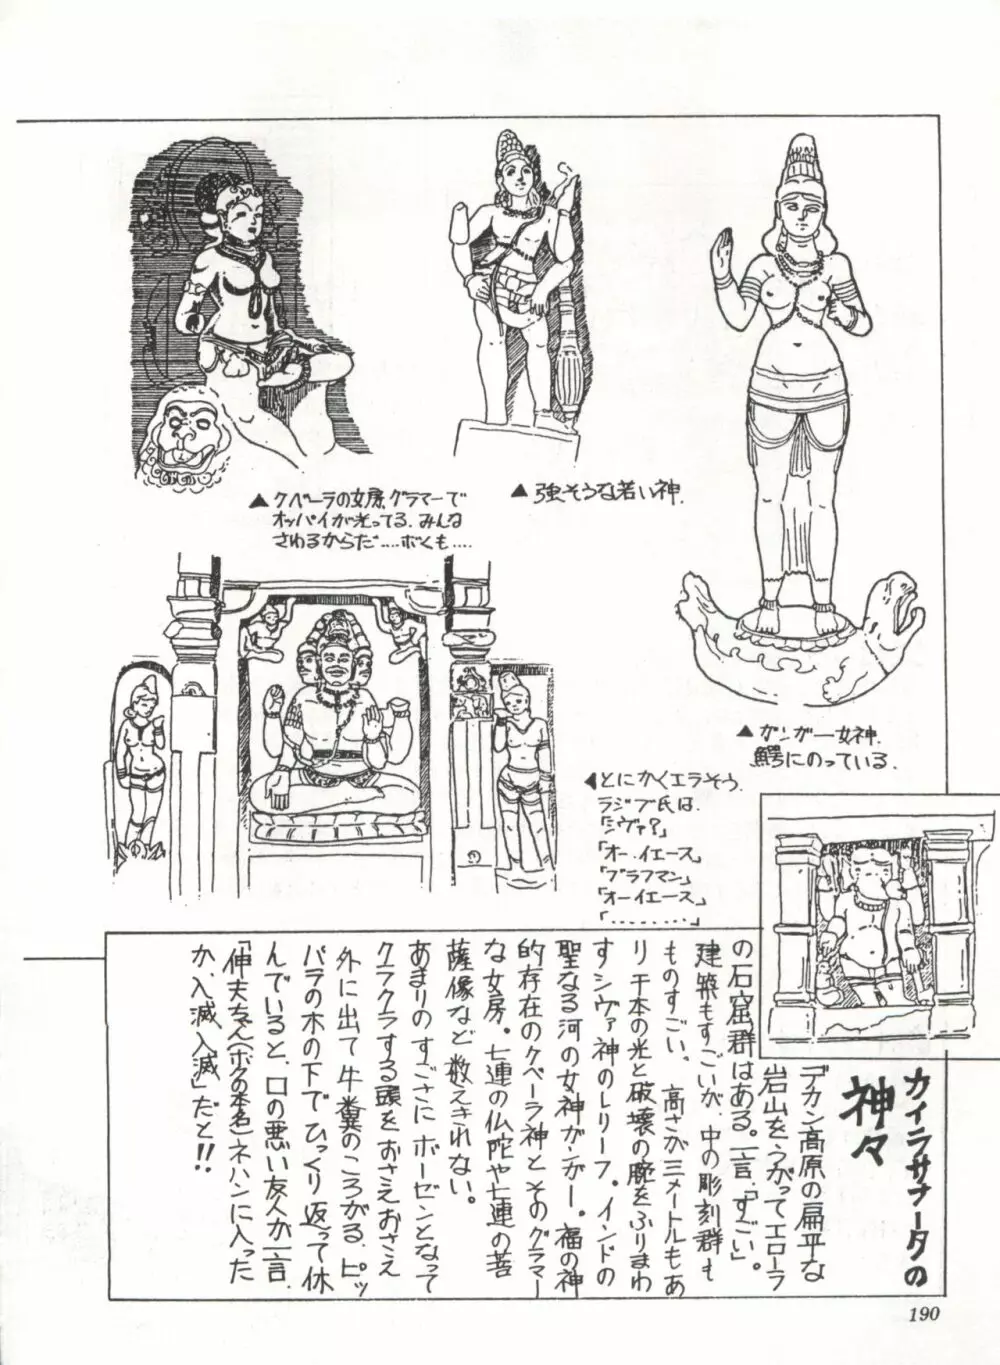 ▲クベーラの女房、グラマーで
オッパイが光ってる。みんな
さわるからだ……ボくも……
▲強そうな若い神。
▲ガンガー女神。
鰐にのっている。
◀とにかくエラそう。
ラジブ氏は、
「シヴァ？」
「オー、イエース」
「ブラフマン」
「オーイエース」
「………」
カイラサナータの
神々
「デカン高原の扁平な
岩山をうがってエローラ
の石窟群はある。一言、「すごい」。
建築もすごいが、中の彫刻群も
ものすごい。高さが三メートルもあ
り千本の光と破壊の腕をふりまわ
すシヴァ神のレリーフ。インドの
聖なる河の女神ガンガー。福の神
的存在のクベーラ神とそのグラマー
な女房。七連の仏陀や七連の菩
薩像など数えきれない。
あまりのすごさにボーゼンとなって
クラクラする頭をおさえおさえ
外に出て牛糞のころがる、ピッ
パラの木の下でひっくり返って休
んでいると、口の悪い友人が一言、
「伸夫ちゃん(ボクの本名)ネハンに入った
か、入滅、入滅」だと!!
190